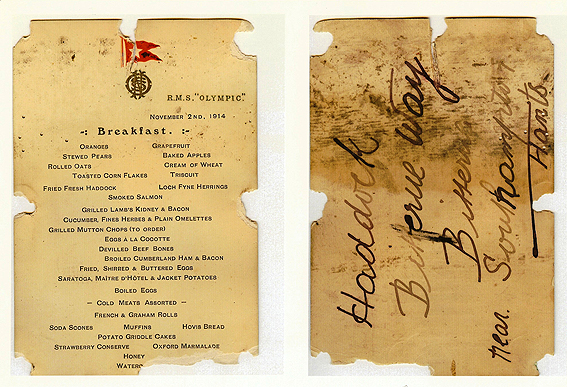 R.M.S. "OLYMPIC."
NOVEMBER 2ND, 1914
-: Breakfast. :-
ORANGES GRAPEFRUIT
STEWED PEARS BAKED APPLES
ROLLED OATS CREAM OF WHEAT
TOASTED CORN FLAKES TRISCUIT
FRIED FRESH HADDOCK LOCH FYNE HERRINGS
SMOKED SALMON
GRILLED LAMB'S KIDNEY & BACON
CUCUMBER, FINES HERBES & PLAIN OMELETTES
GRILLED MUTTON CHOPS (TO ORDER)
EGGS À LA COCOTTE
DEVILLED BEEF BONES
BROILED CUMBERLAND HAM & BACON
FRIED, SHIRRED & BUTTERED EGGS
SARATOGA, MAÎTRE D'HÔTEL & JACKET POTATOES
BOILED EGGS
— COLD MEATS ASSORTED —
FRENCH & GRAHAM ROLLS
SODA SCONES MUFFINS HOVIS BREAD
POTATO GRIDDLE CAKES
STRAWBERRY CONSERVE OXFORD MARMALADE
HONEY
WATERC
Haddock
Bitterne Way
Bitterne
near Southampton
Hants